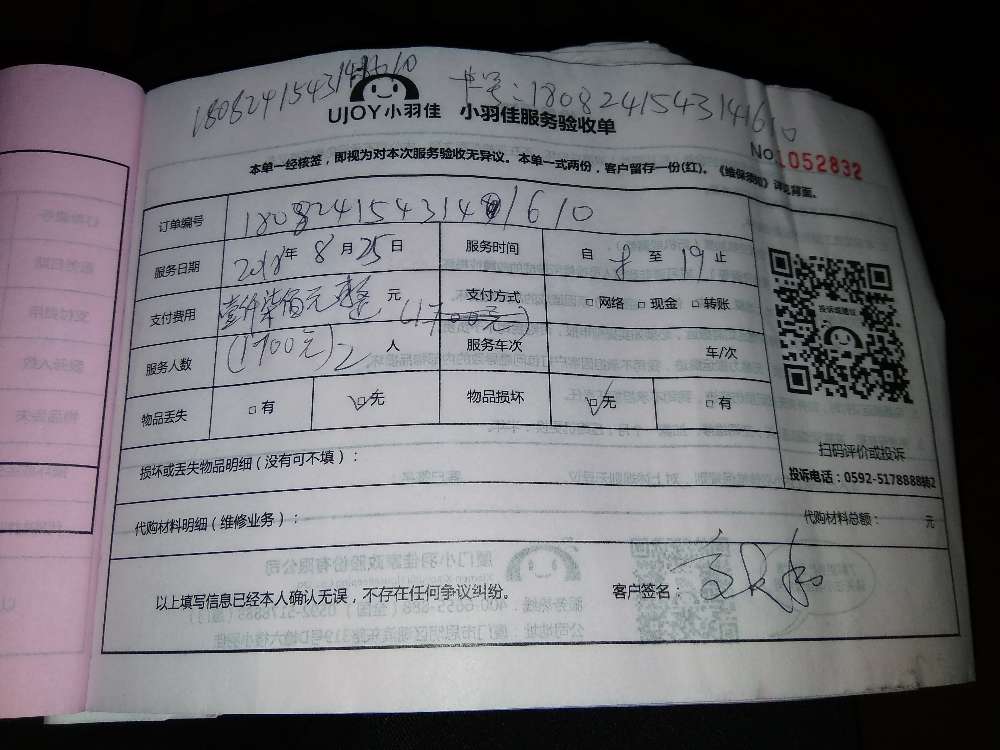 1808241543141610 卡号:1808241543141610
UJOY小羽佳 小羽佳服务验收单
NO 1052832
本单一经核签，即视为对本次服务验收无异议。本单一式两份，客户留存一份(红)。《维保须知》详见背面。
订单编号 1808241543141610
服务日期 2018年 8月25日 服务时间 自 8 至 19 止
支付费用 壹仟柒佰元整 元 (1700元) 支付方式 □网络 □现金 □转账
服务人数 (1700元) 2 人 服务车次 车/次
物品丢失 □有 ☑无 物品损坏 ☑无 □有
投诉或建议
扫码评价或投诉
损坏或丢失物品明细（没有可不填）：
投诉电话：0592-5178888转2
代购材料明细（维修业务）： 代购材料总额： 元
以上填写信息已经本人确认无误，不存在任何争议纠纷。 客户签名：